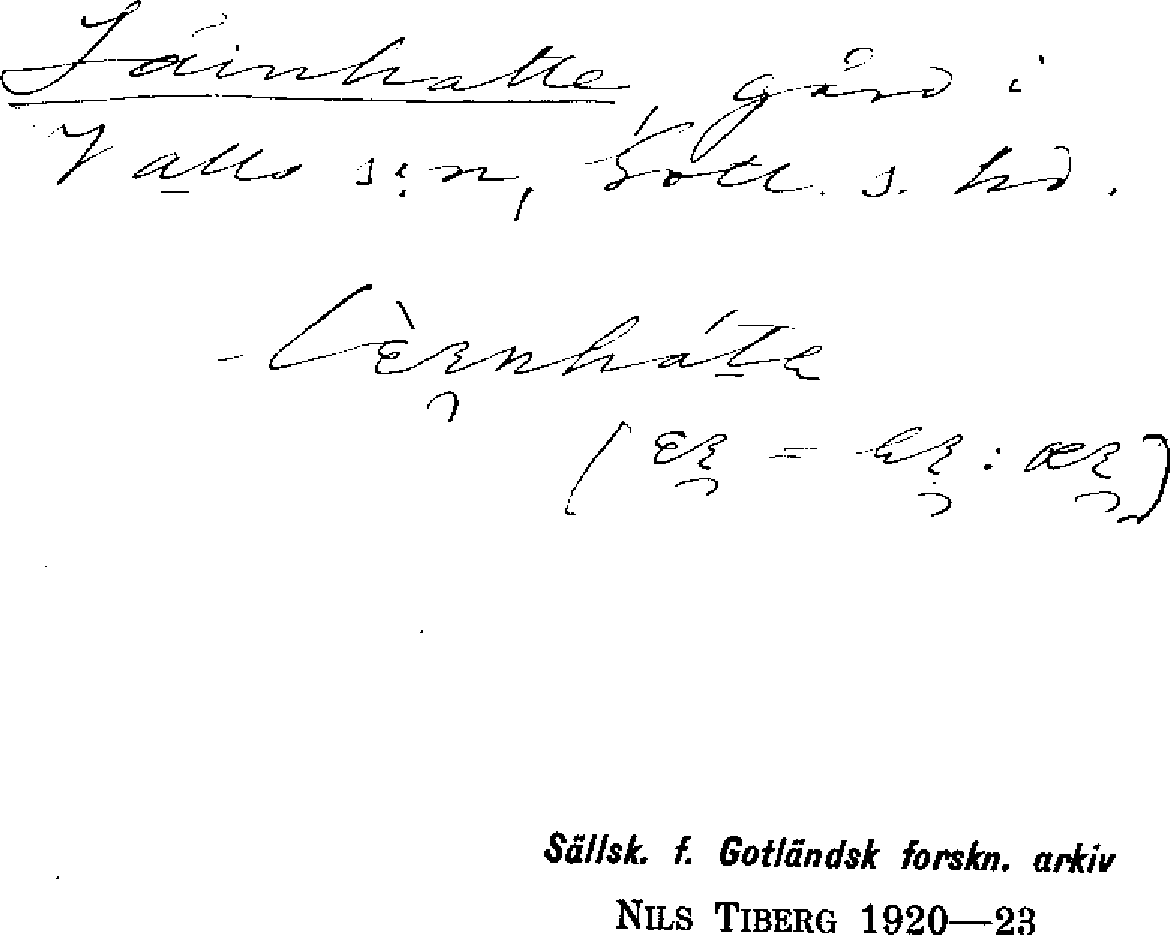 Läinhatte, gård i
Valls s:n, Gotl. s. hd.
- lèᴇnháte
(ɛᴇ = eᴇ : æᴇ)
Sällsk. f. Gotländsk forskn. arkiv
NILS TIBERG 1920—23